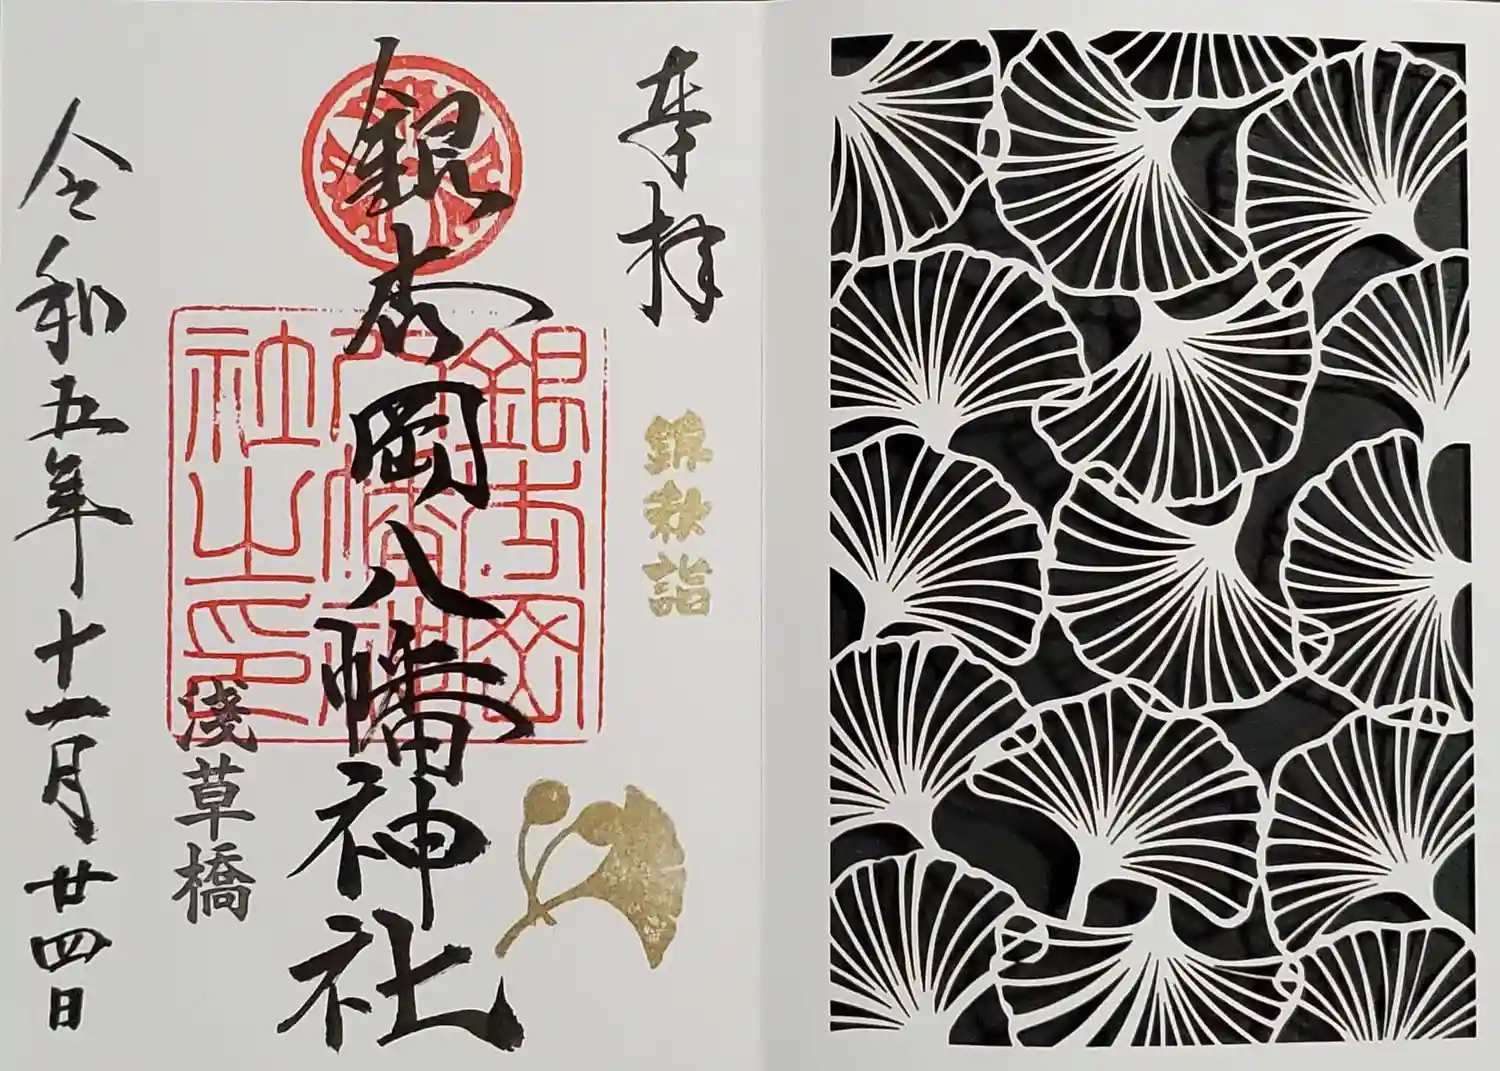 奉拝
錦秋詣
銀杏岡八幡神社
銀杏岡
八幡神
社之印
淺草橋
令和五年十一月廿四日